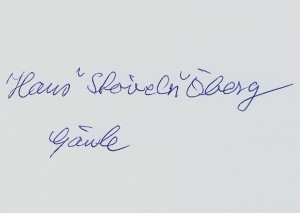 "Hans" Stöveln" Öberg
Gävle